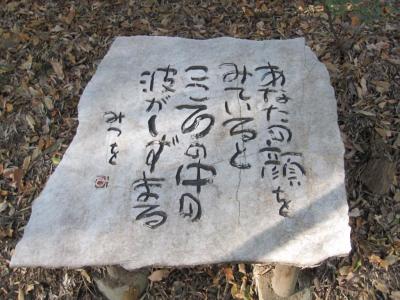 あなたの顔を
みていると
こころの中の
波がしずまる
みつを